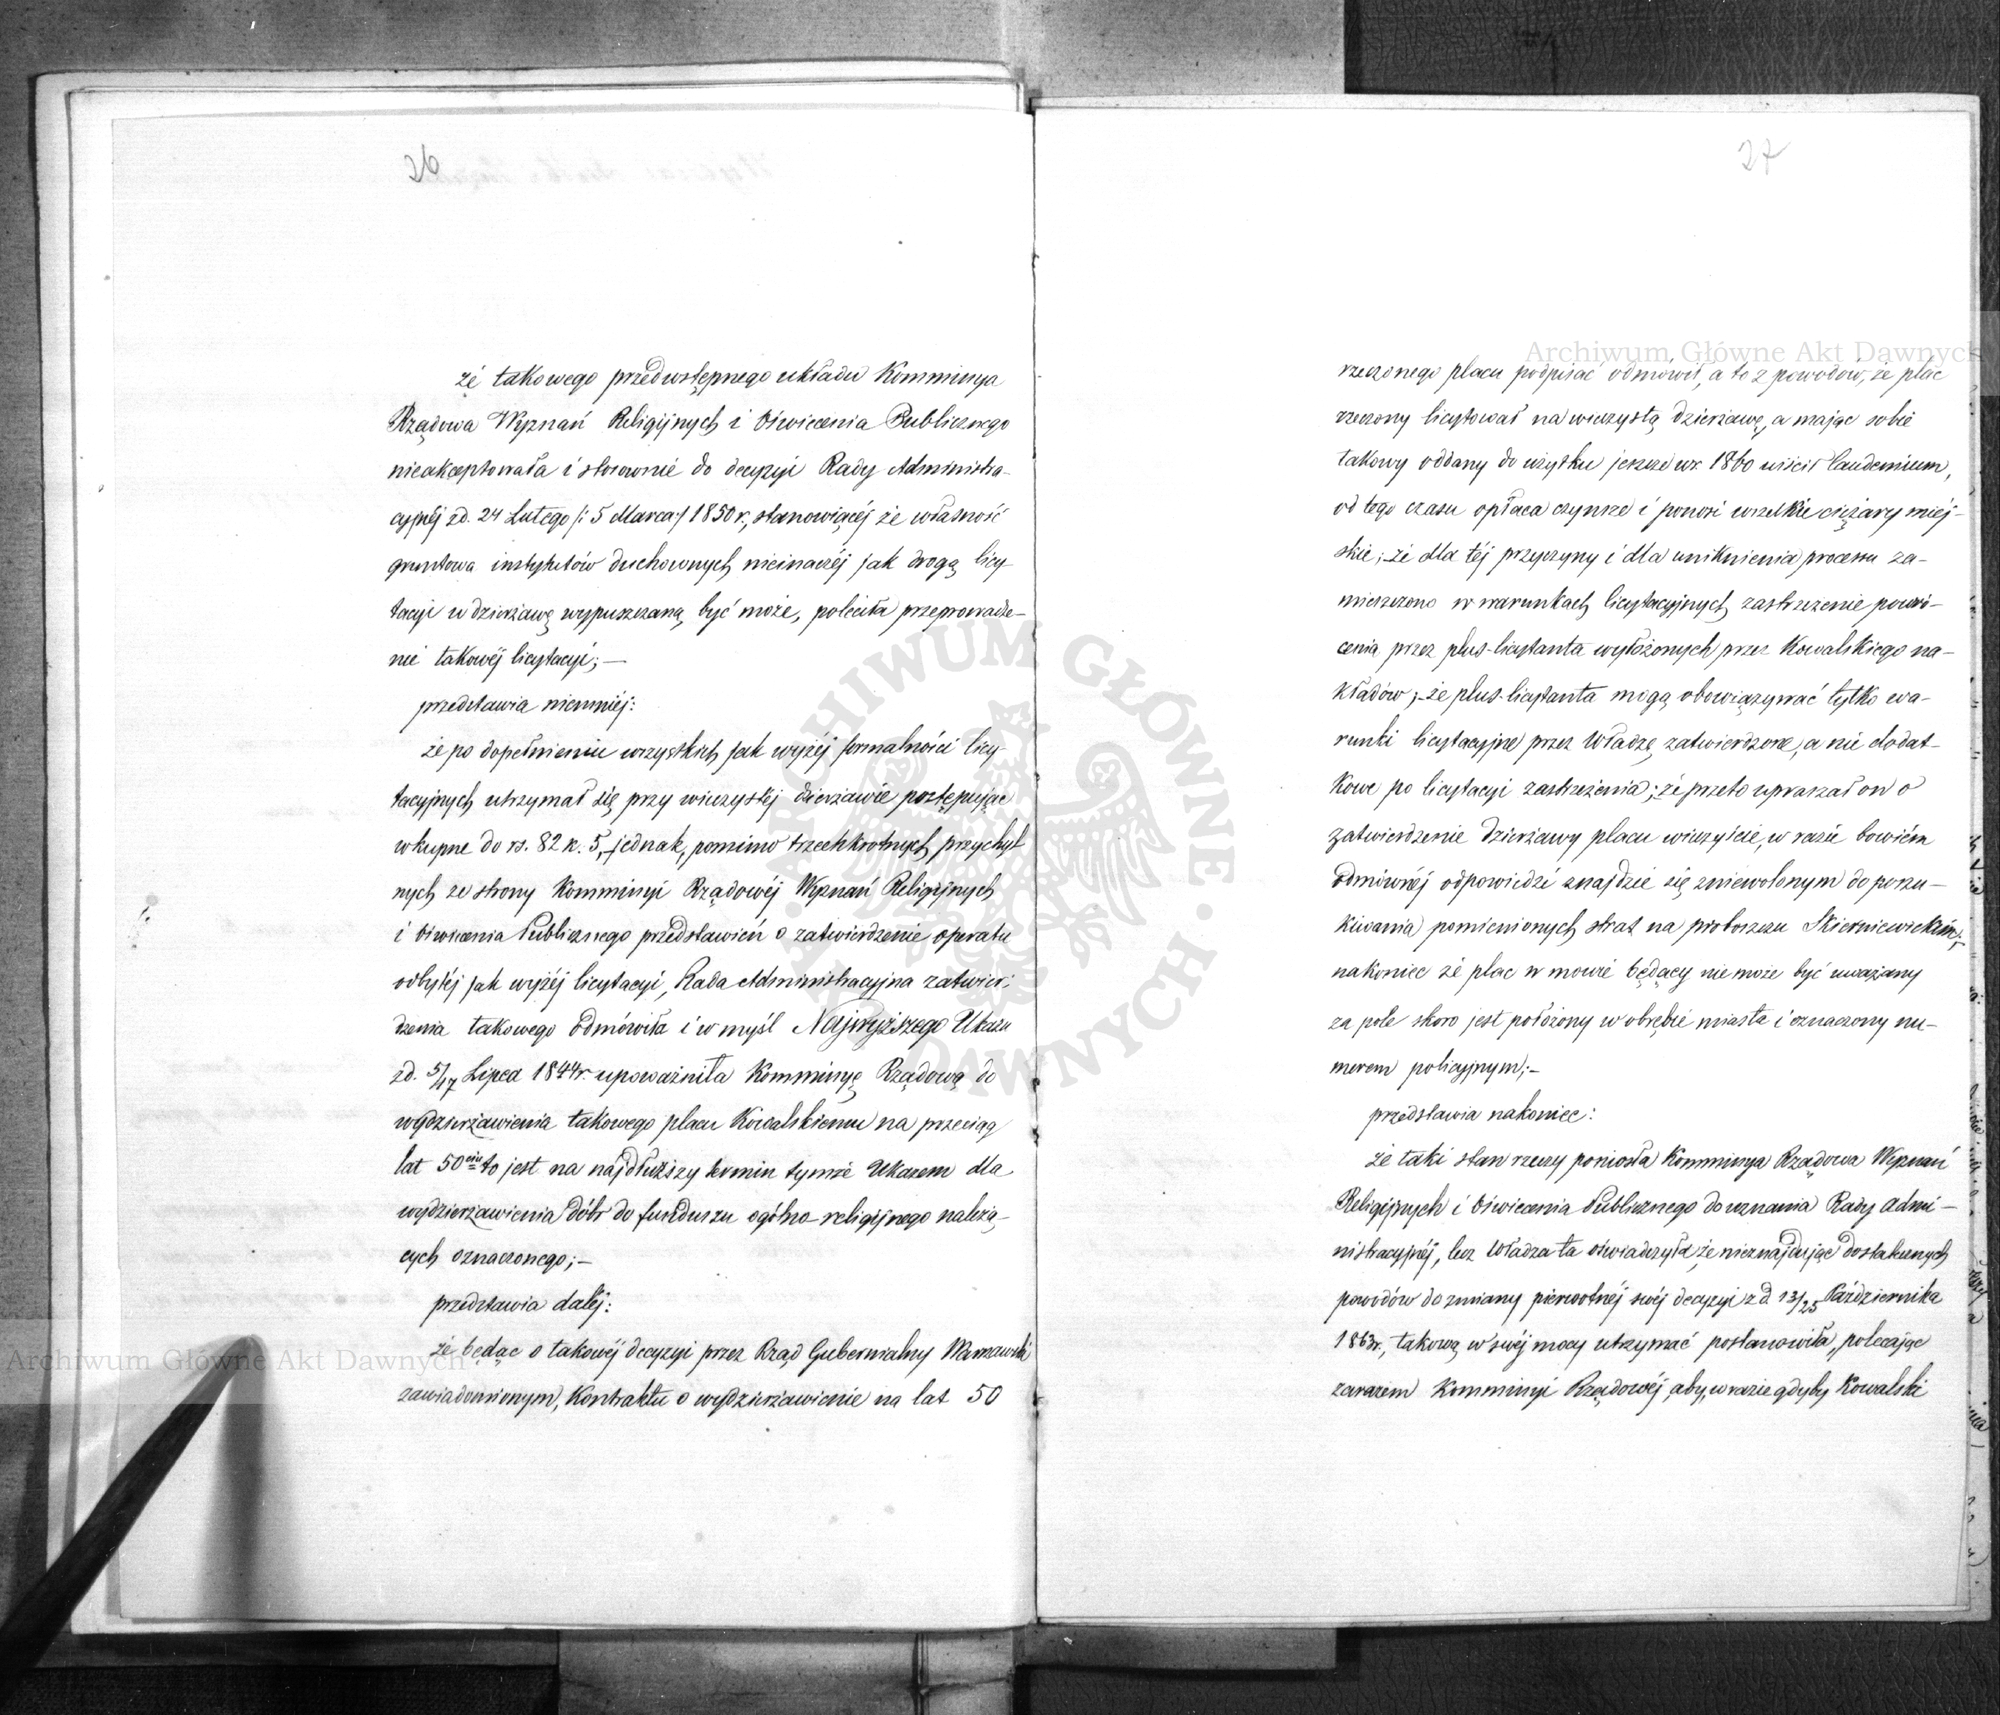 26
że takowego przedwstępnego układu Kommissya
Rządowa Wyznań Religijnych i Oświecenia Publicznego
nieakceptowała i stosownie do decyzyi Rady Administra-
cyjnéj z d. 24 Lutego /: 5 Marca :/ 1850 r., stanowiącéj że własność
gruntowa instytutów duchownych nieinaczéj jak drogą licy-
tacyi w dzierżawę wypuszczaną być może, poleciła przeprowadze-
nie takowéj licytacyi; —
przedstawia niemniéj:
że po dopełnieniu wszystkich jak wyżéj formalności licy-
tacyjnych utrzymał się przy wieczystéj dzierżawie postępując
wkupne do rs. 82 k. 5, jednak, pomimo trzechkrotnych przychyl
nych ze strony Kommissyi Rządowéj Wyznań Religijnych
i Oświecenia Publicznego przedstawień o zatwierdzenie operatu
odbytéj jak wyżéj licytacyi, Rada Administracyjna zatwier-
dzenia takowego odmówiła i w myśl Najwyższego Ukazu
z d. 5/17 Lipca 1844 r. upoważniła Kommissyę Rządową do
wydzierżawienia takowego placu Kowalskiemu na przeciąg
lat 50ciu to jest na najdłuższy termin tymże Ukazem dla
wydzierżawienia dóbr do funduszu ogólno-religijnego należą-
cych oznaczonego; —
przedstawia daléj:
że będąc o takowéj decyzyi przez Rząd Gubernialny Warszawski
zawiadomionym, Kontraktu o wydzierżawienie na lat 50
27
rzeczonego placu podpisać odmówił, a to z powodów, że plac
rzeczony licytował na wieczystą dzierżawę, a mając sobie
takowy oddany do użytku jeszcze w r. 1860 uiścił laudemium,
od tego czasu opłaca czynsze i ponosi wszelkie ciężary miej-
skie; że dla téj przyczyny i dla uniknienia processu za-
mieszczono w warunkach licytacyjnych zastrzeżenie powró-
cenia przez plus-licytanta wyłożonych przez Kowalskiego na-
kładów; że plus-licytanta mogą obowiązywać tylko wa-
runki licytacyjne przez Władzę zatwierdzone, a nie dodat-
kowe po licytacyi zastrzeżenia; że przeto upraszał on o
zatwierdzenie dzierżawy placu wieczyście, w razie bowiem
odmównéj odpowiedzi znajdzie się zniewolonym do poszu-
kiwania pomienionych strat na proboszczu Skierniewickim;
nakoniec że plac w mowie będący nie może być uważany
za pole skoro jest położony w obrębie miasta i oznaczony nu-
merem policyjnym; —
przedstawia nakoniec:
że taki stan rzeczy poniosła Kommissya Rządowa Wyznań
Religijnych i Oświecenia Publicznego do uznania Rady Admi-
nistracyjnéj, lecz Władza ta oświadczyła, że nieznajdując dostatecznych
powodów do zmiany pierwotnéj swéj decyzyi z d. 13/25 Października
1863 r., takową w swéj mocy utrzymać postanowiła, polecając
zarazem Kommissyi Rządowéj, aby, w razie gdyby Kowalski
Archiwum Główne Akt Dawnych
Archiwum Główne Akt Dawnych
ARCHIWUM GŁÓWNE AKT DAWNYCH